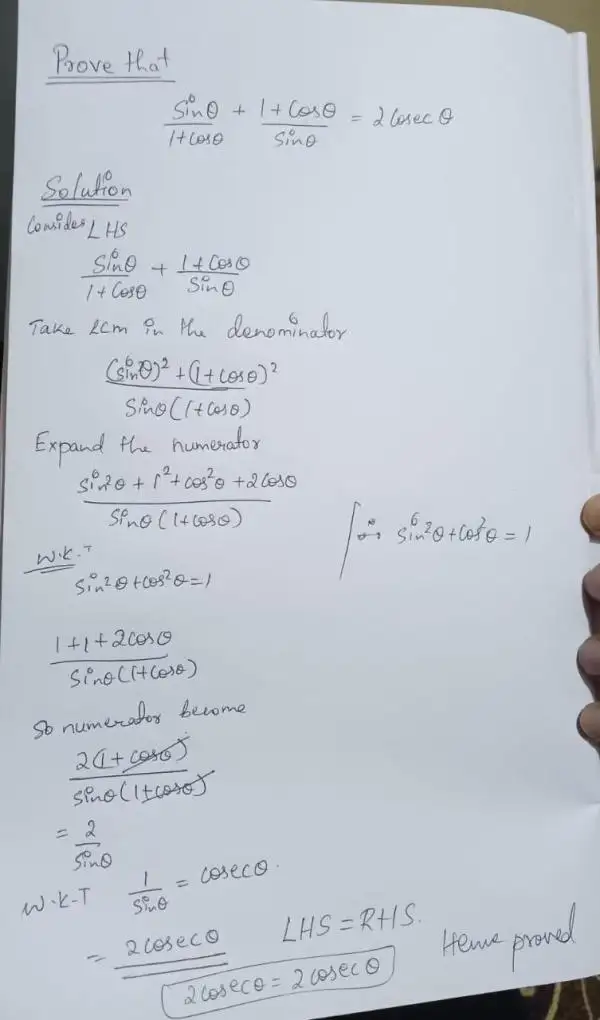 Prove that
Sinθ/1+Cosθ + 1+Cosθ/Sinθ = 2Cosec θ
Solution
Consider LHS
Sinθ/1+Cosθ + 1+Cosθ/Sinθ
Take LCM in the denominator
(sinθ)² + (1+cosθ)²/Sinθ(1+cosθ)
Expand the numerator
sin²θ + 1² + cos²θ + 2cosθ/Sinθ(1+cosθ)
∵ sin²θ + cos²θ = 1
W.K.T
Sin²θ + cos²θ = 1
1+1+2cosθ/Sinθ(1+cosθ)
So numerator become
2(1+cosθ)/sinθ(1+cosθ)
= 2/Sinθ
W.K-T 1/Sinθ = cosecθ.
= 2cosecθ LHS = RHS.
2cosecθ = 2cosecθ Hence proved